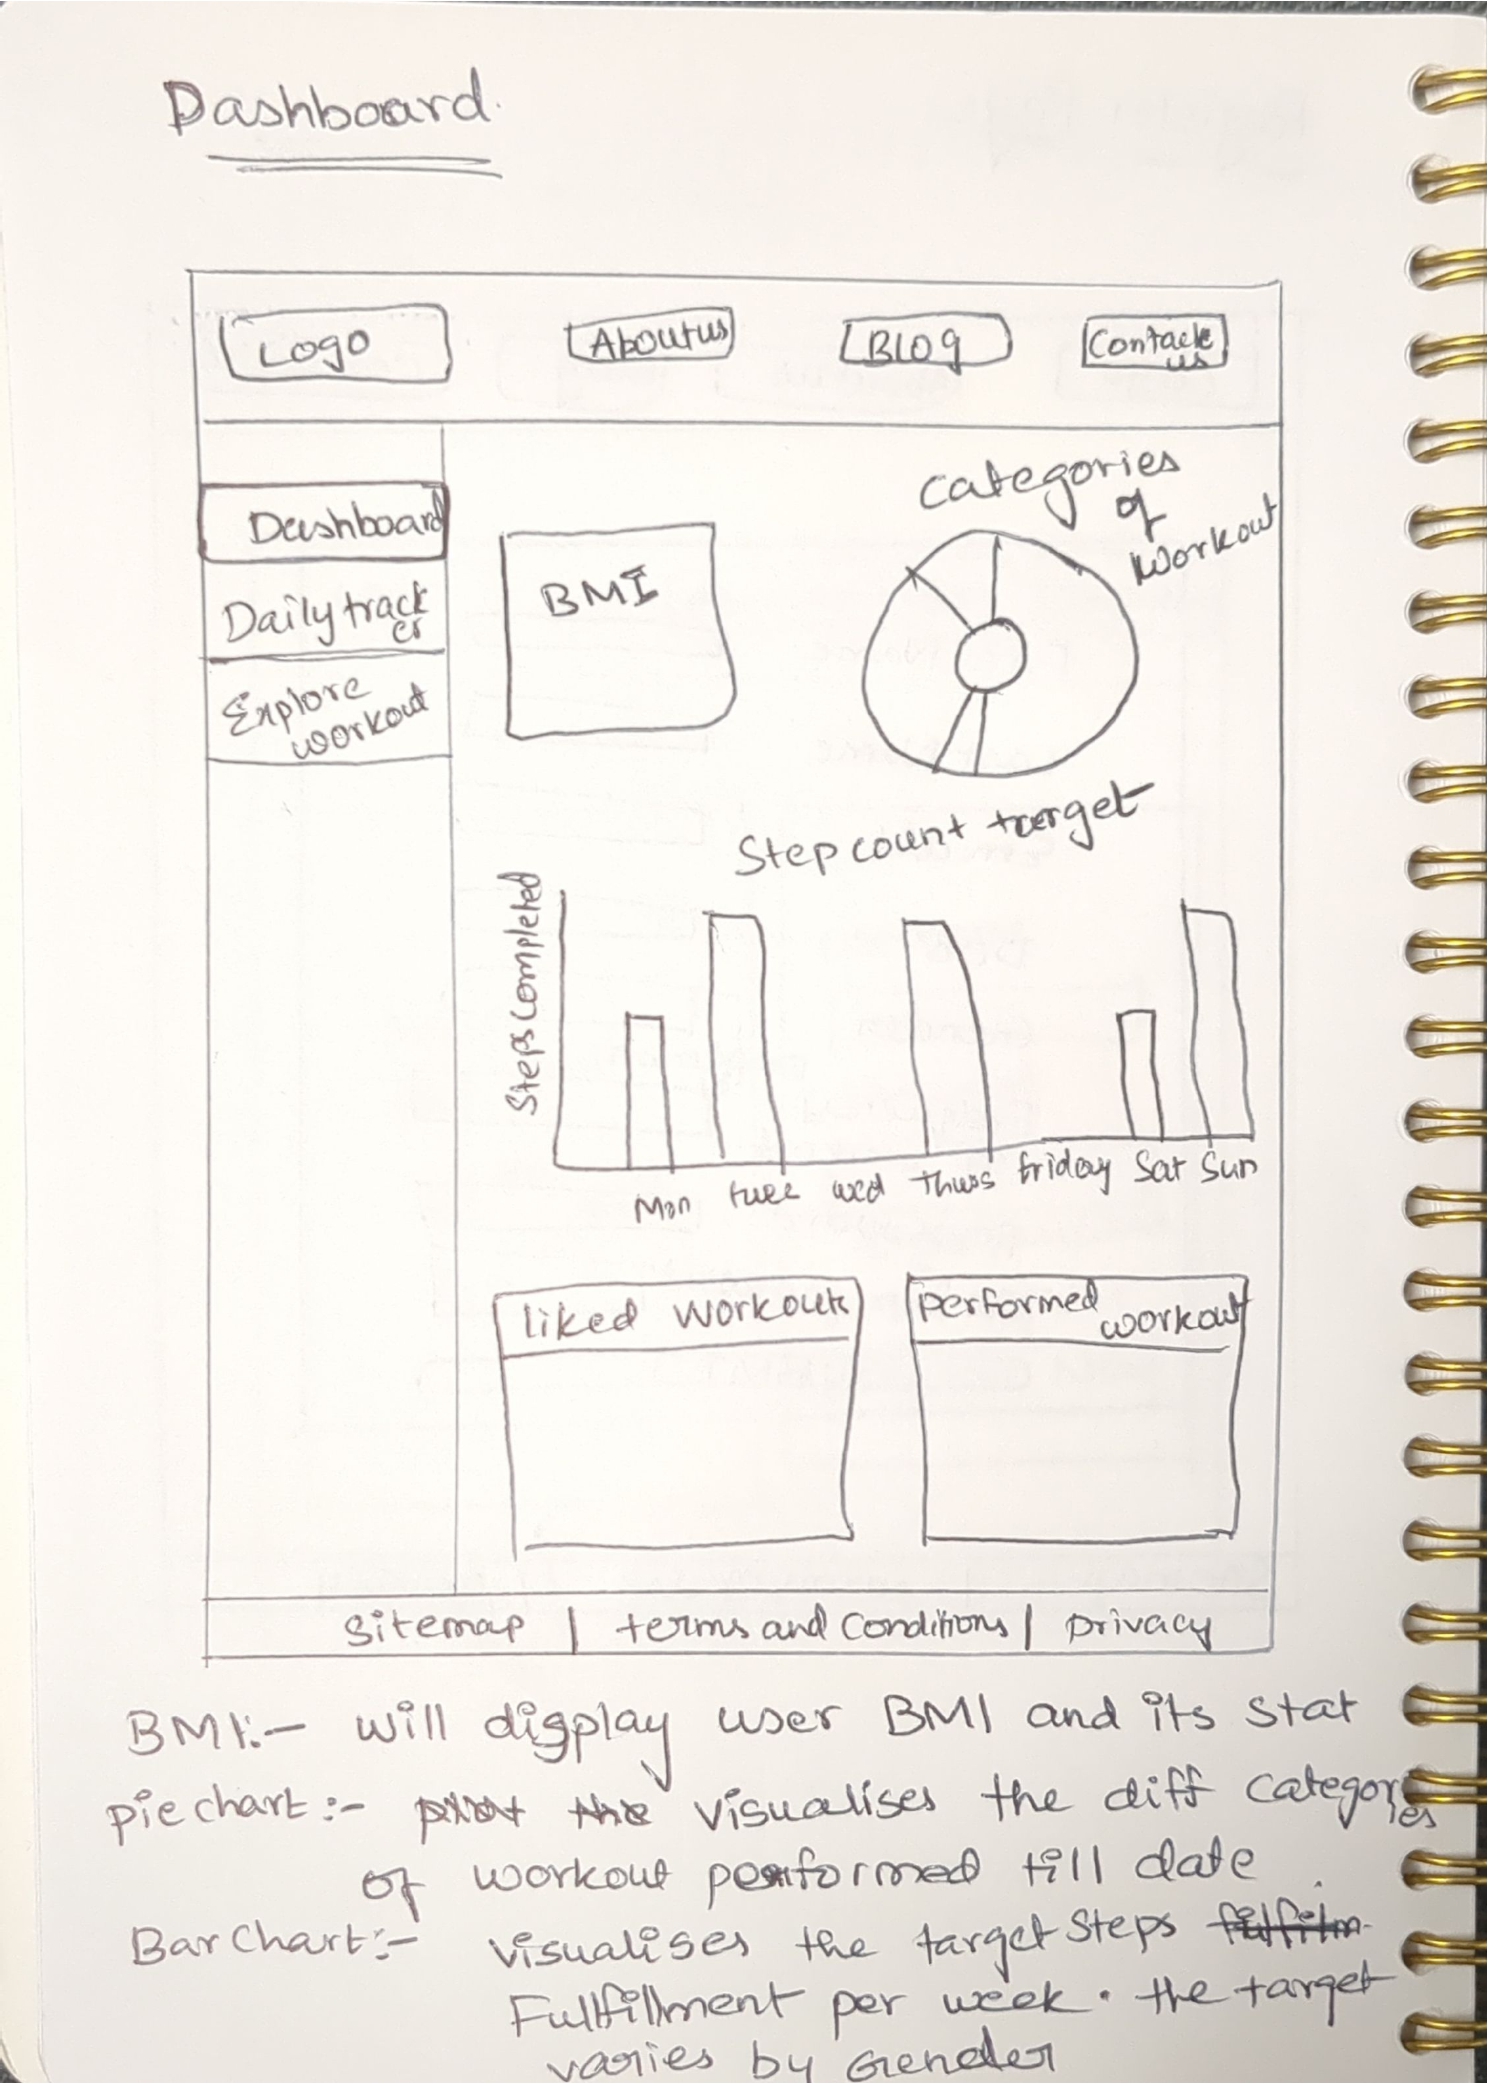 Dashboard
Logo
Aboutus
Blog
Contact
us
Dashboard
Daily track
er
Explore
workout
BMI
Categories
of
Workout
Step count target
Steps Completed
Mon tues wed Thurs friday Sat Sun
liked workouts
performed
workout
Sitemap | terms and Conditions | privacy
BMI:- will display user BMI and its stat
pie chart:- plot the visualises the diff categor
ies
of workout performed till date.
Bar Chart:- visualises the target steps fulfilm
Fullfillment per week. the target
varies by Gender